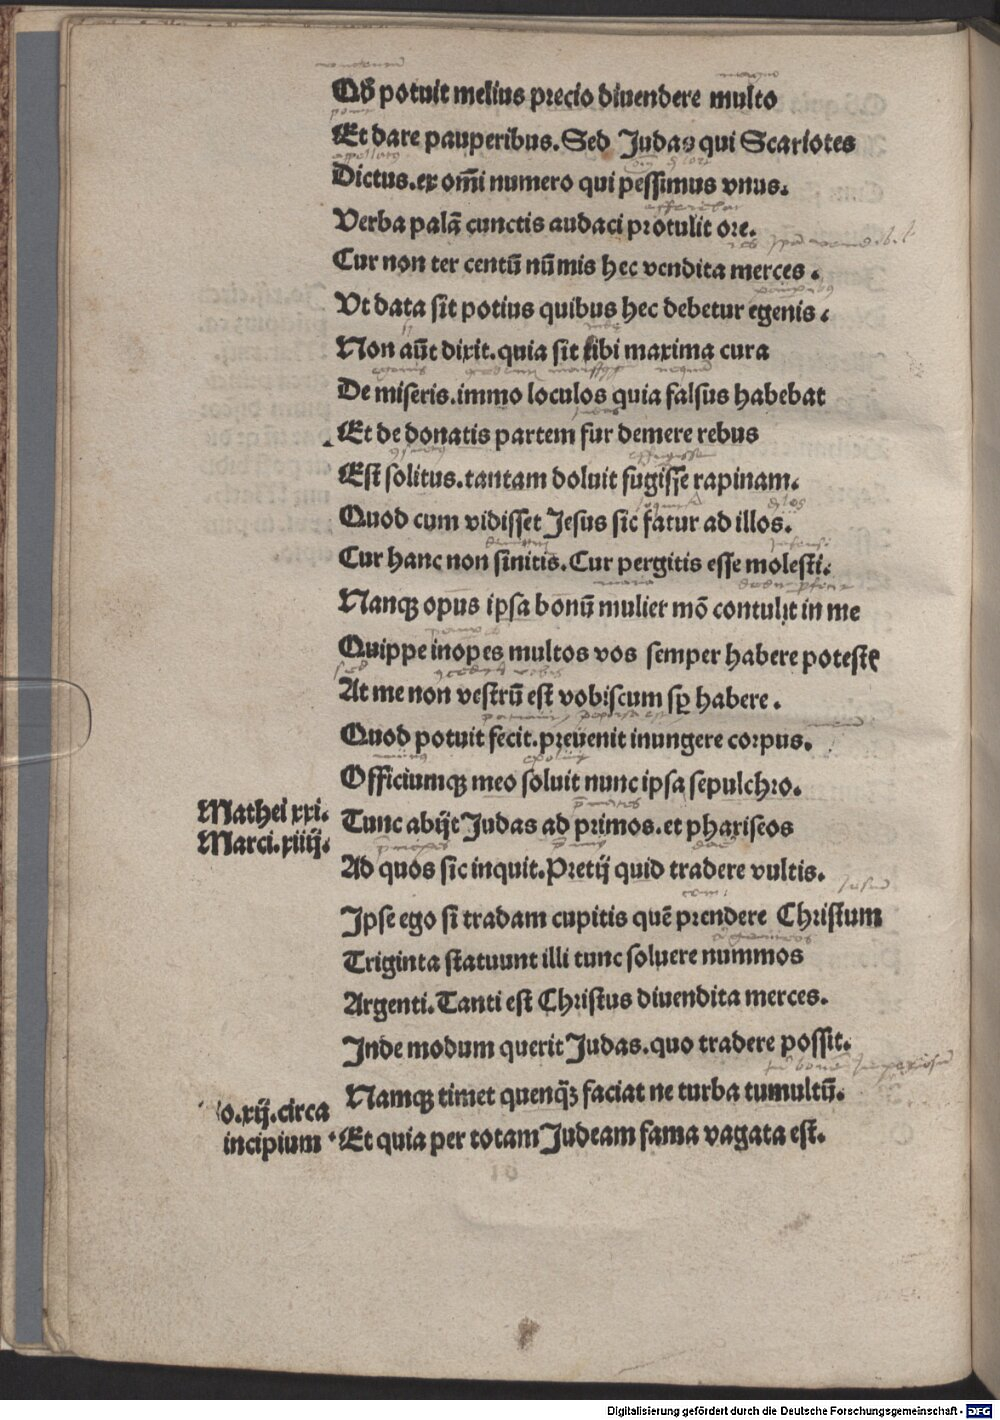 Qd̕ potuit melius precio diuendere multo
Et dare pauperibus. Sed Judas qui Scariotes
Dictus. ex om̄i numero qui pessimus vnus.
Verba palā cunctis audaci protulit ore.
Cur non ter centū nūmis hec vendita merces.
Vt data sit potius quibus hec debetur egenis.
Non aūt dixit. quia sit sibi maxima cura
De miseris. immo loculos quia falsus habebat
Et de donatis partem fur demere rebus
Est solitus. tantam doluit fugisse rapinam.
Quod cum vidisset Jesus sic fatur ad illos.
Cur hanc non sinitis. Cur pergitis esse molesti.
Nanqꝫ opus ipsa bonū mulier mō contulit in me
Quippe inopes multos vos semper habere potestꝭ
At me non vestrū est vobiscum sꝑ habere.
Quod potuit fecit. preuenit inungere corpus.
Officiumqꝫ meo soluit nunc ipsa sepulchro.
Mathei xxi.
Marci. xiiij.
Tunc abijt Judas ad primos. et phariseos
Ad quos sic inquit. Pretij quid tradere vultis.
Ipse ego si tradam cupitis quē prendere Christum
Triginta statuunt illi tunc soluere nummos
Argenti. Tanti est Christus diuendita merces.
Inde modum querit Judas. quo tradere possit.
Namqꝫ timet quenqꝫ̄ faciat ne turba tumultū.
o. xij. circa
incipium
Et quia per totam Judeam fama vagata est.
Digitalisierung gefördert durch die Deutsche Forschungsgemeinschaft - DFG